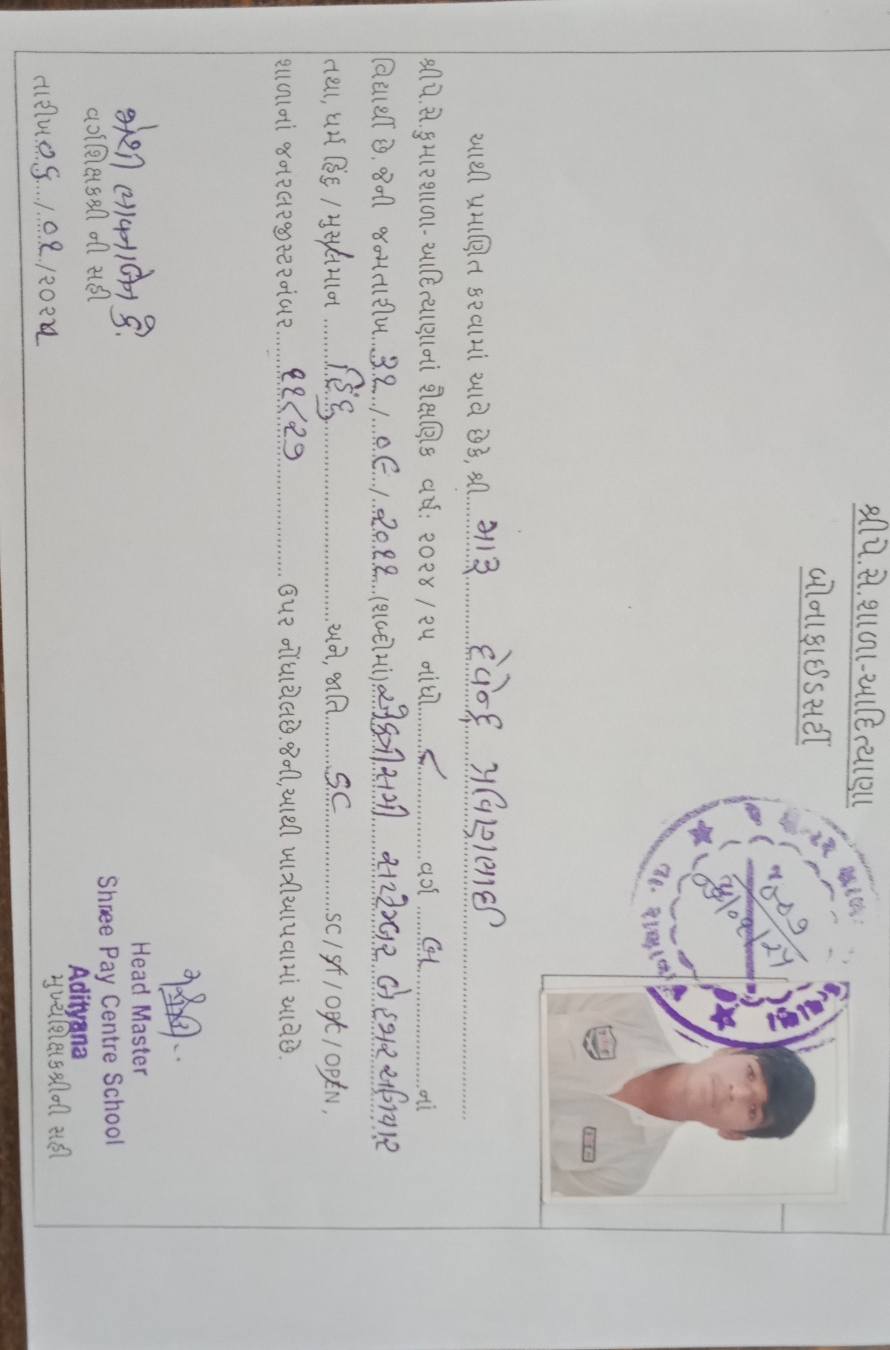 શ્રી પે.સે.શાળા-આદિત્યાણા
બોનાફાઈડ સર્ટી
આથી પ્રમાણિત કરવામાં આવે છે કે, શ્રી મારૂ દેવેન્દ્ર પ્રવિણભાઈ
શ્રી પે.સે.કુમારશાળા-આદિત્યાણાનાં શૈક્ષણિક વર્ષ: ૨૦૨૪ / ૨૫ નાંધો ૮ વર્ગ બ નાં
વિદ્યાર્થી છે. જેની જન્મતારીખ ૩૧ / ૦૮ / ૨૦૧૧ (શબ્દોમાં) એકત્રીસમી બે હજાર અગિયાર
તથા, ધર્મ હિંદુ / મુસ્લમાન હિંદુ અને, જાતિ SC / ST / OBC / OPEN.
શાળાનાં જનરલ રજીસ્ટર નંબર ૧૧૮૨૭ ઉપર નોંધાયેલ છે. જેની, આથી ખાત્રી આપવામાં આવે છે.
જોશી ભાવનાબેન કે.
વર્ગશિક્ષકશ્રી ની સહી
તારીખ ૦૬ / ૦૧ / ૨૦૨૫
Head Master
Shree Pay Centre School
Adityana
મુખ્યશિક્ષકશ્રીની સહી